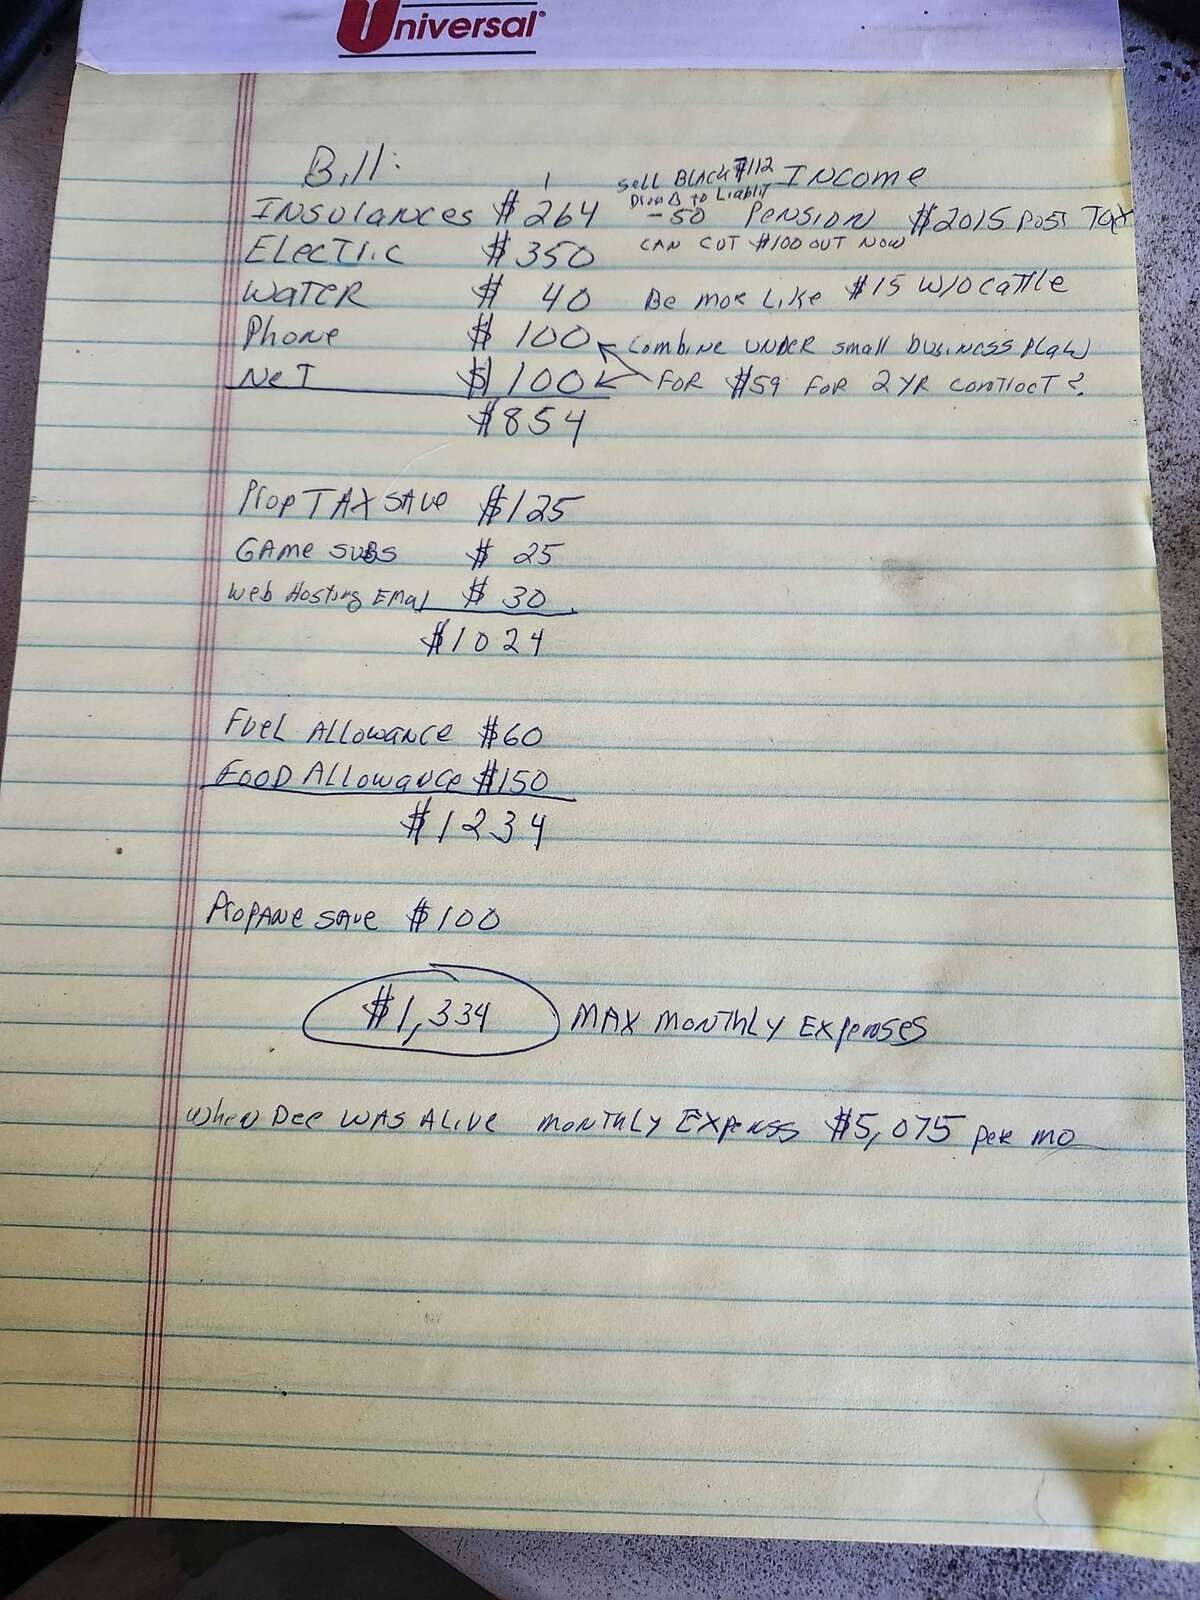 Universal®
Bill:
Sell Black $112
Income
Insurances $264
Drop to Liablit
-50
Pension $2015 Post Tax
Electric $350
Can cut $100 out now
Water $ 40
Be mor like $15 w/o cattle
Phone $ 100
Combine under small business plan
Net $100
For $59 for 2 yr contract?
$854
Prop Tax save $125
Game subs $ 25
Web Hosting Email $ 30
$1024
Fuel Allowance $60
Food Allowance $150
$1234
Propane save $100
$1,334 Max monthly Expenses
When Dee was alive monthly Expenss $5,075 per mo